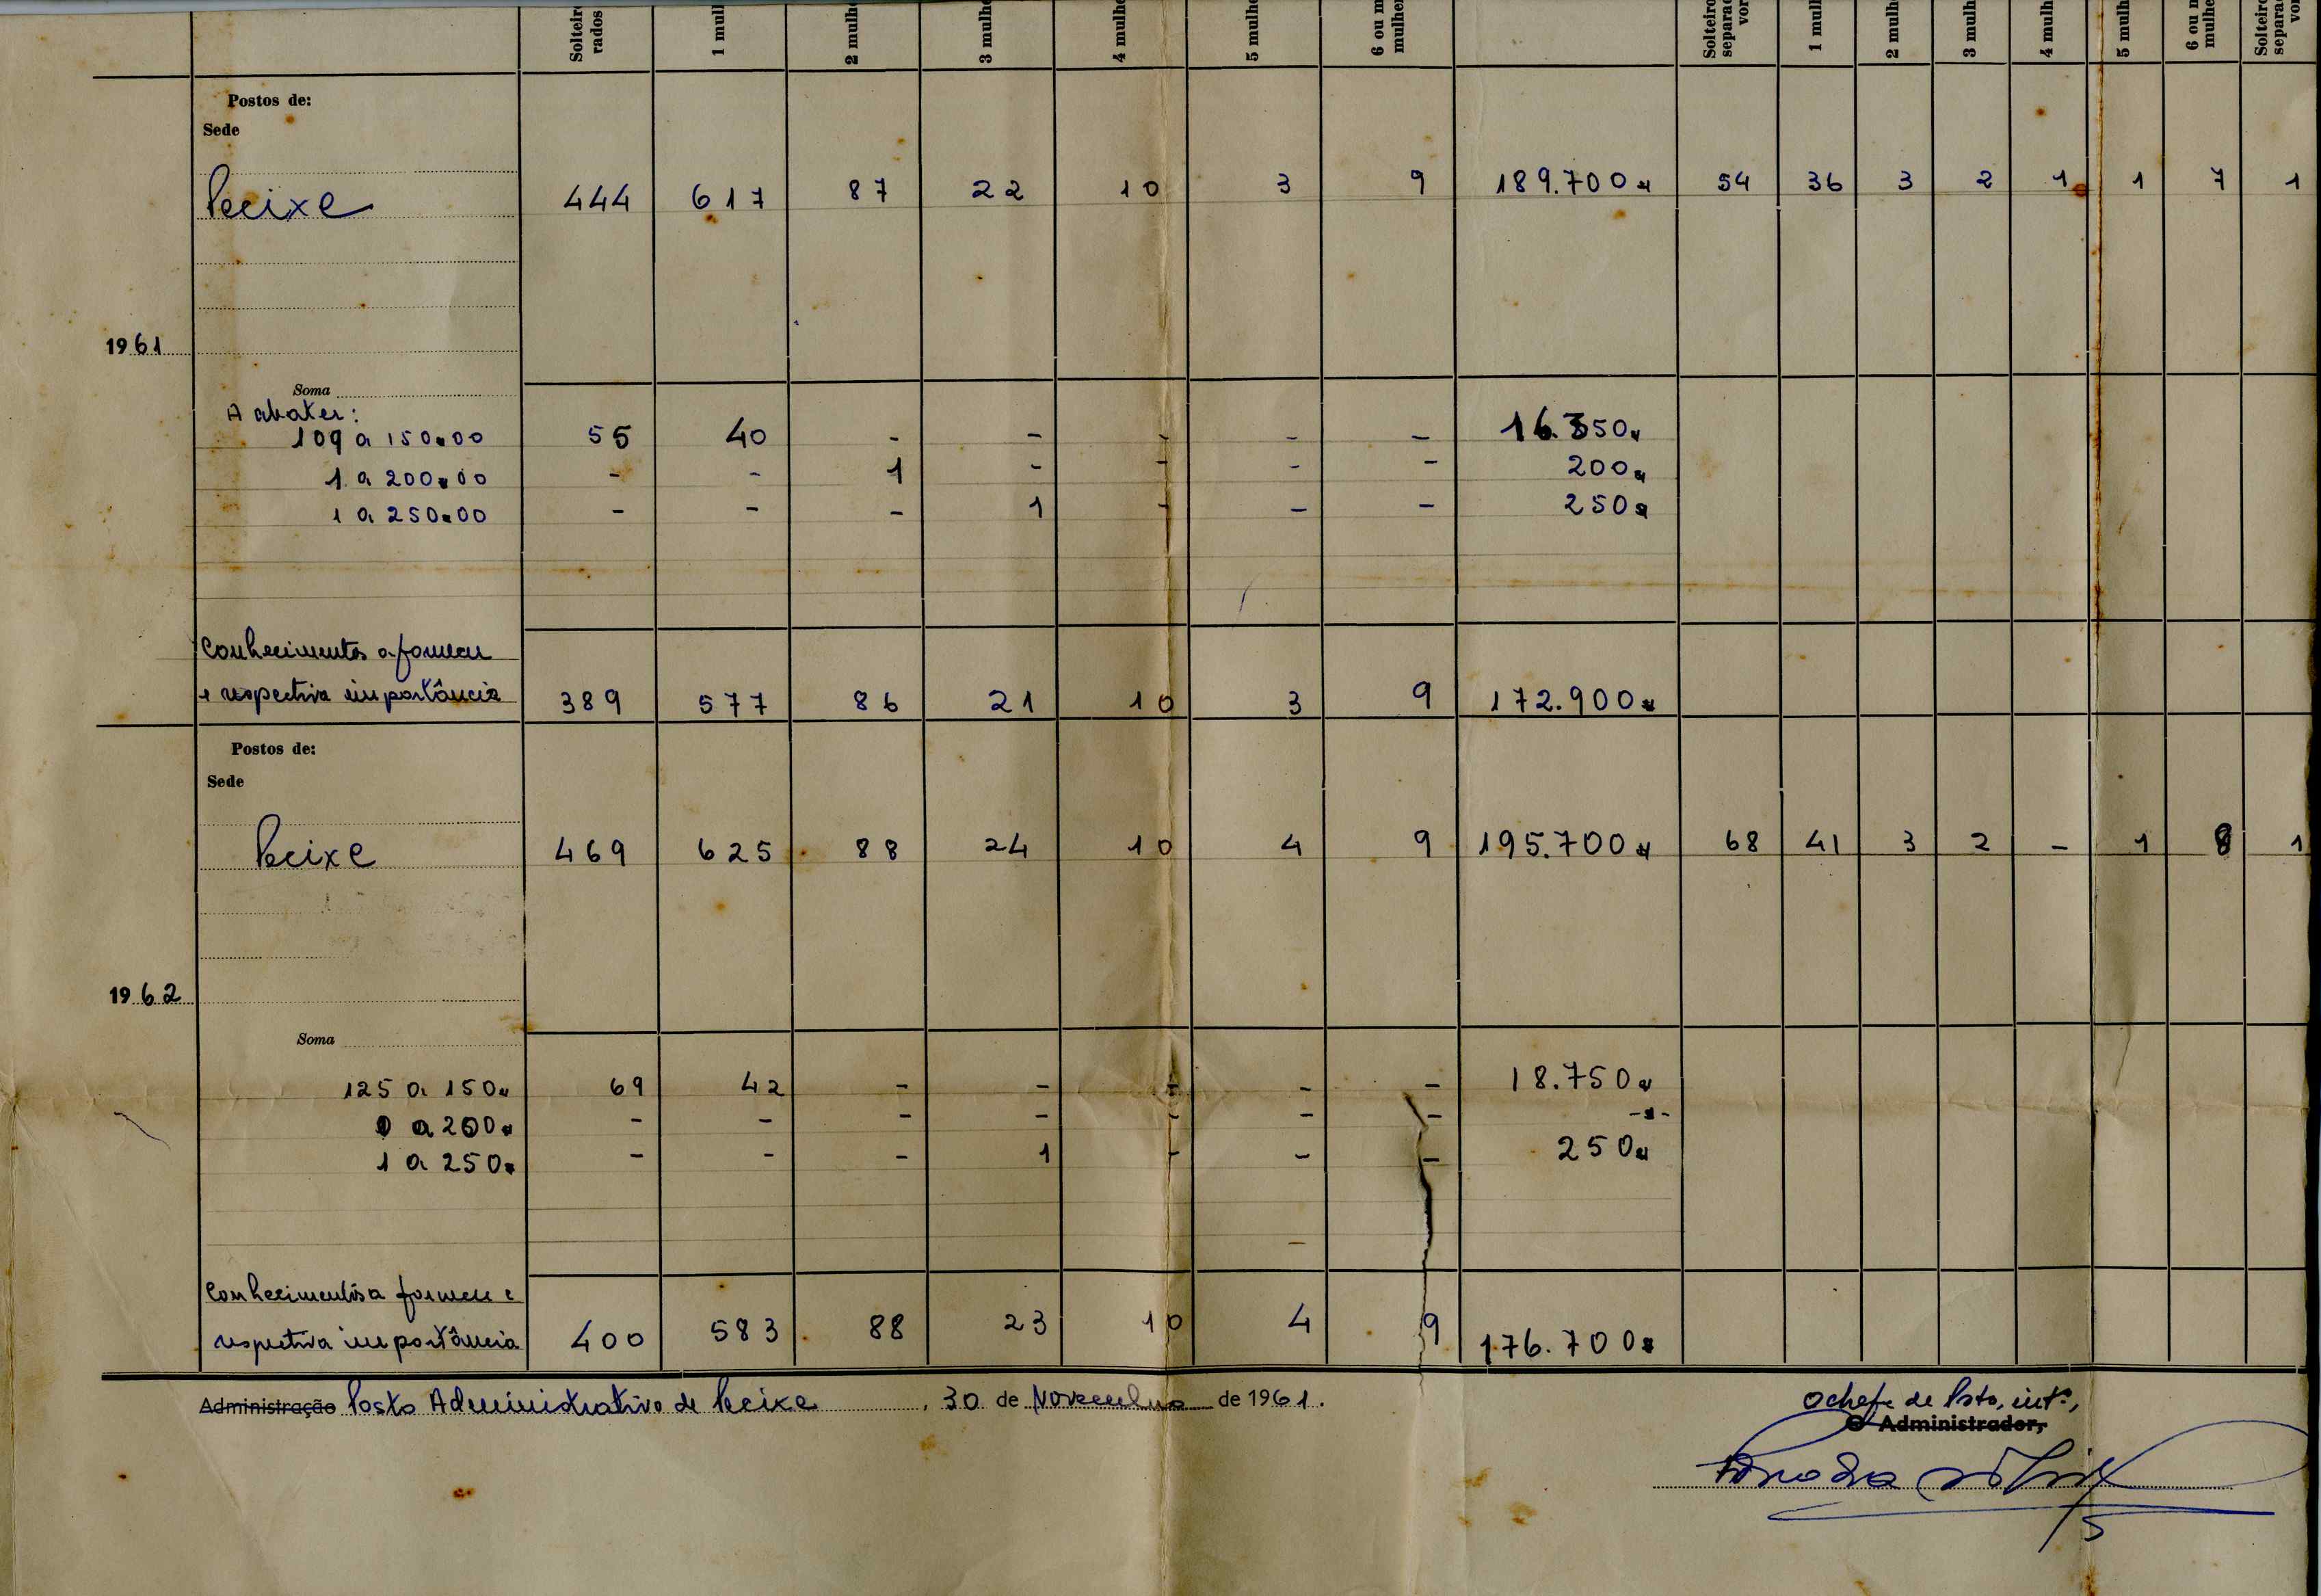 Solteir rados 1 mulh 2 mulhe 3 mulhe 4 mulhe 5 mulhe 6 ou m mulher Solteiro separad vor 1 mull 2 mulh 3 mulh 4 mulh 5 mulh 6 ou m mulhe Solteiro separa vo
Postos de:
Sede
Peixe 444 617 87 22 10 3 9 189.700$ 54 36 3 2 1 1 7 1
1961
Soma
A abater:
109 a 150$00 55 40 - - - - - 16.350$
1 a 200$00 - - 1 - - - - 200$
1 a 250$00 - - - 1 - - - 250$
Conhecimentos a fornecer
e respectiva importância 389 577 86 21 10 3 9 172.900$
Postos de:
Sede
Peixe 469 625 88 24 10 4 9 195.700$ 68 41 3 2 - 1 8 1
1962
Soma
125 a 150$ 69 42 - - - - - 18.750$
0 a 200$ - - - - - - - -$-
1 a 250$ - - - 1 - - - 250$
-
Conhecimentos a fornecer e
respectiva importância 400 583 88 23 10 4 9 176.700$
Administração Posto Administrativo de Peixe, 30 de Novembro de 1961.
O chefe de Posto, int.º,
O Administrador,